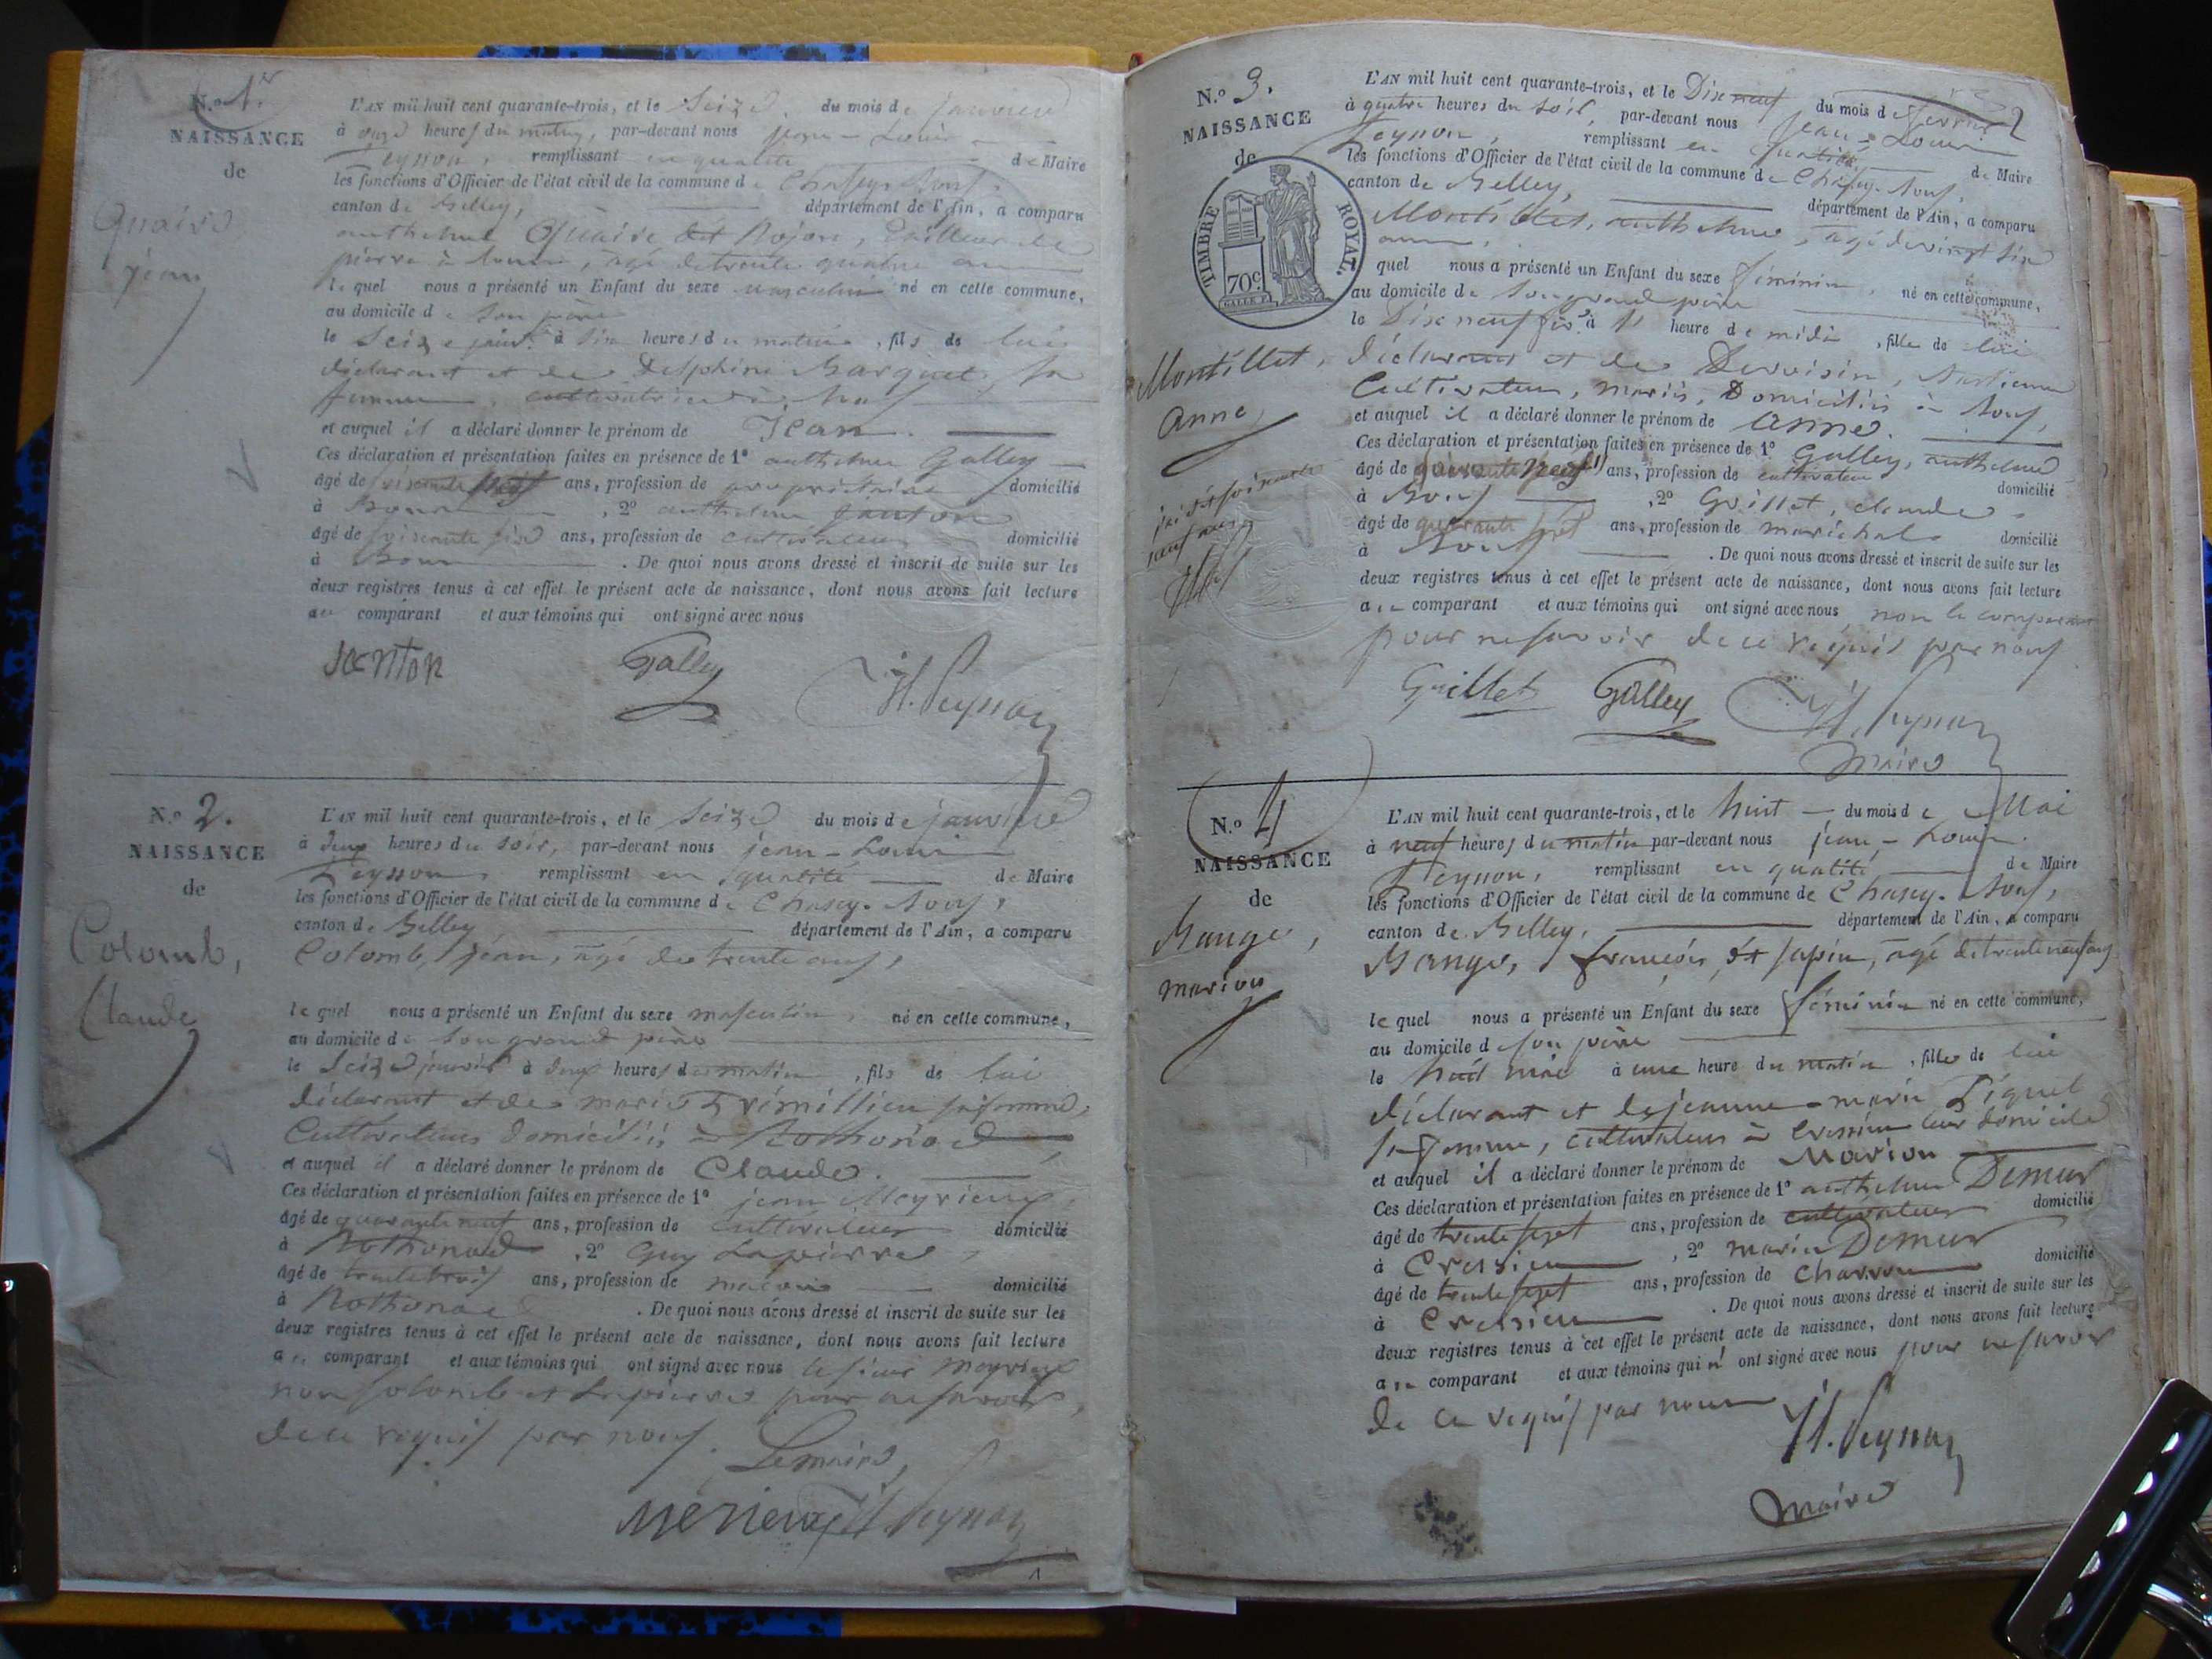 N.º 1.er
NAISSANCE
de
Quaire
jean
L'AN mil huit cent quarante-trois, et le Seize du mois de janvier
à onze heures du matin, par-devant nous jean-Louis
Peysson, remplissant en qualité de Maire
les fonctions d'Officier de l'état civil de la commune de Chazey-Bons,
canton de Belley, département de l'Ain, a comparu
anthelme Quaire dit Rojon, tailleur de
pierre à , âgé de trente quatre ans
lequel nous a présenté un Enfant du sexe masculin né en cette commune,
au domicile de son père
le Seize janv.er à six heures du matin, fils de lui
déclarant et de Delphine Barquet, sa
femme, à
et auquel il a déclaré donner le prénom de Jean.
Ces déclaration et présentation faites en présence de 1º anthelme Galley
âgé de ans, profession de propriétaire domicilié
à Bons, 2º anthelme janton
âgé de soixante six ans, profession de cultivateur domicilié
à Bons. De quoi nous avons dressé et inscrit de suite sur les
deux registres tenus à cet effet le présent acte de naissance, dont nous avons fait lecture
au comparant et aux témoins qui ont signé avec nous
janton Galley JL. Peysson
N.º 2.
NAISSANCE
de
Colomb,
Claude
L'AN mil huit cent quarante-trois, et le Seize du mois de janvier
à deux heures du soir, par-devant nous jean-Louis
Peysson, remplissant en qualité de Maire
les fonctions d'Officier de l'état civil de la commune de Chazey-Bons,
canton de Belley département de l'Ain, a comparu
Colomb, jean, âgé de trente ans,
lequel nous a présenté un Enfant du sexe masculin, né en cette commune,
au domicile de son grand père
le Seize janvier à deux heures du matin, fils de lui
déclarant et de marie Trémillieu sa femme,
Cultivateurs domiciliés à Rothonod
et auquel il a déclaré donner le prénom de Claude.
Ces déclaration et présentation faites en présence de 1º jean Meyrieux,
âgé de quarante neuf ans, profession de cultivateur domicilié
à Rothonod, 2º Guy Lapierre
âgé de trente trois ans, profession de maçon domicilié
à Rothonod. De quoi nous avons dressé et inscrit de suite sur les
deux registres tenus à cet effet le présent acte de naissance, dont nous avons fait lecture
au comparant et aux témoins qui ont signé avec nous le sieur Meyrieux
non Colomb et Lapierre pour ne savoir,
de ce requis par nous.
Le maire,
Mérieux JL Peysson
1
2
N.º 3.
NAISSANCE
de
TIMBRE ROYAL.
70c
Montillet,
Anne,
L'AN mil huit cent quarante-trois, et le Dix neuf du mois de février
à quatre heures du soir, par-devant nous Jean-Louis
Peysson, remplissant en qualité de Maire
les fonctions d'Officier de l'état civil de la commune de Chazey-Bons,
canton de Belley, département de l'Ain, a comparu
Montillet, anthelme, âgé de vingt six
ans,
quel nous a présenté un Enfant du sexe féminin, né en cette commune,
au domicile de son grand père
le Dix neuf fév.r à 1 heure de midi, fille de lui
déclarant et de Devoisin,
Cultivateurs, mariés, Domiciliés à Bons,
et auquel il a déclaré donner le prénom de Anne.
Ces déclaration et présentation faites en présence de 1º Galley, anthelme
âgé de soixante neuf ans, profession de cultivateur domicilié
à Bons, 2º Guillet, claude
âgé de quarante sept ans, profession de maréchal domicilié
à Bons. De quoi nous avons dressé et inscrit de suite sur les
deux registres tenus à cet effet le présent acte de naissance, dont nous avons fait lecture
au comparant et aux témoins qui ont signé avec nous non le comparant
pour ne savoir de ce requis par nous
Guillet Galley JL. Peysson
Maire
N.º 4
NAISSANCE
de
Mange,
marion
L'AN mil huit cent quarante-trois, et le huit du mois de Mai
à neuf heures du matin par-devant nous jean-Louis
Peysson, remplissant en qualité de Maire
les fonctions d'Officier de l'état civil de la commune de Chazey-Bons,
canton de Belley, département de l'Ain, a comparu
Mange, françois, dit sapin, âgé de trente neuf ans
lequel nous a présenté un Enfant du sexe féminin né en cette commune,
au domicile de son père
le huit mai à une heure du matin, fille de lui
déclarant et de jeanne-marie Piquet
sa femme, cultivateurs à Cressieu leur domicile
et auquel il a déclaré donner le prénom de Marion
Ces déclaration et présentation faites en présence de 1º anthelme Demeur
âgé de trente sept ans, profession de cultivateur domicilié
à Cressieu, 2º marin Demeur
âgé de trente sept ans, profession de charron domicilié
à Cressieu. De quoi nous avons dressé et inscrit de suite sur les
deux registres tenus à cet effet le présent acte de naissance, dont nous avons fait lecture
au comparant et aux témoins qui n' ont signé avec nous pour ne savoir
de ce requis par nous
JL. Peysson
Maire